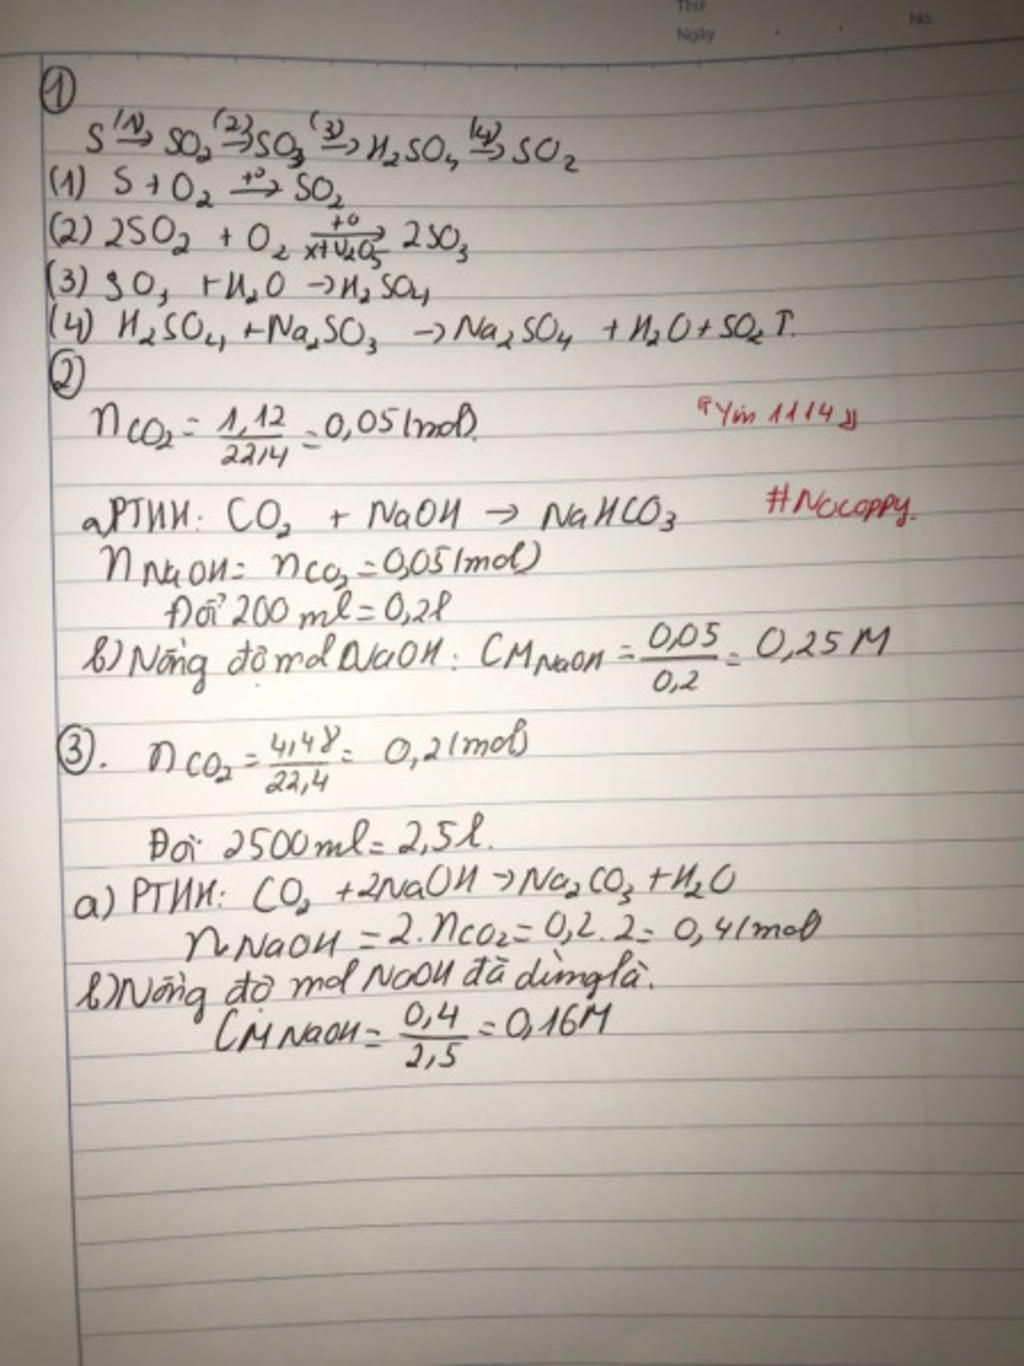 Thứ
Ngày No.
①
S (1)→ SO₂ (2)→ SO₃ (3)→ H₂SO₄ (4)→ SO₂
(1) S + O₂ t°→ SO₂
(2) 2SO₂ + O₂ t°→ xt V₂O₅ 2SO₃
(3) SO₃ + H₂O → H₂SO₄
(4) H₂SO₄ + Na₂SO₃ → Na₂SO₄ + H₂O + SO₂↑.
②
nCO₂ = 1,12/22,4 = 0,05 (mol). 『Yin 1114』
a) PTHH: CO₂ + NaOH → NaHCO₃ #Nocoppy.
nNaOH = nCO₂ = 0,05 (mol)
Đổi 200 ml = 0,2l
b) Nồng độ mol NaOH: CMNaOH = 0,05/0,2 = 0,25 M
③. nCO₂ = 4,48/22,4 = 0,2 (mol)
Đổi 2500 ml = 2,5l.
a) PTHH: CO₂ + 2NaOH → Na₂CO₃ + H₂O
nNaOH = 2.nCO₂ = 0,2.2 = 0,4 (mol)
b) Nồng độ mol NaOH đã dùng là.
CMNaOH = 0,4/2,5 = 0,16M